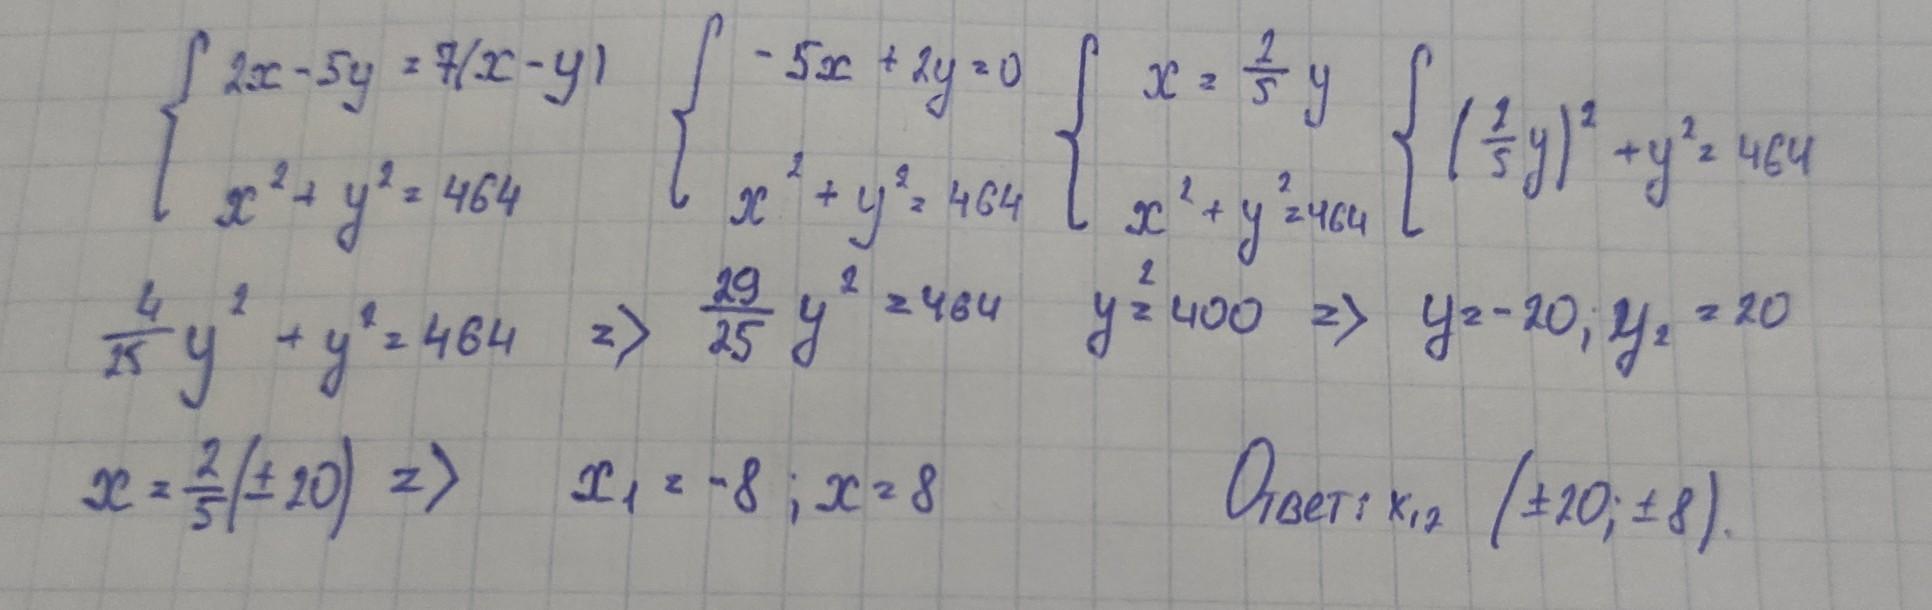 { 2x - 5y = 7(x - y) { -5x + 2y = 0 { x = 2/5 y { (2/5 y)² + y² = 464
x² + y² = 464 x² + y² = 464 x² + y² = 464
4/25 y² + y² = 464 => 29/25 y² = 464 y² = 400 => y = -20; y₂ = 20
x = 2/5 (± 20) => x₁ = -8; x = 8 Ответ: x₁,₂ (±20; ±8).